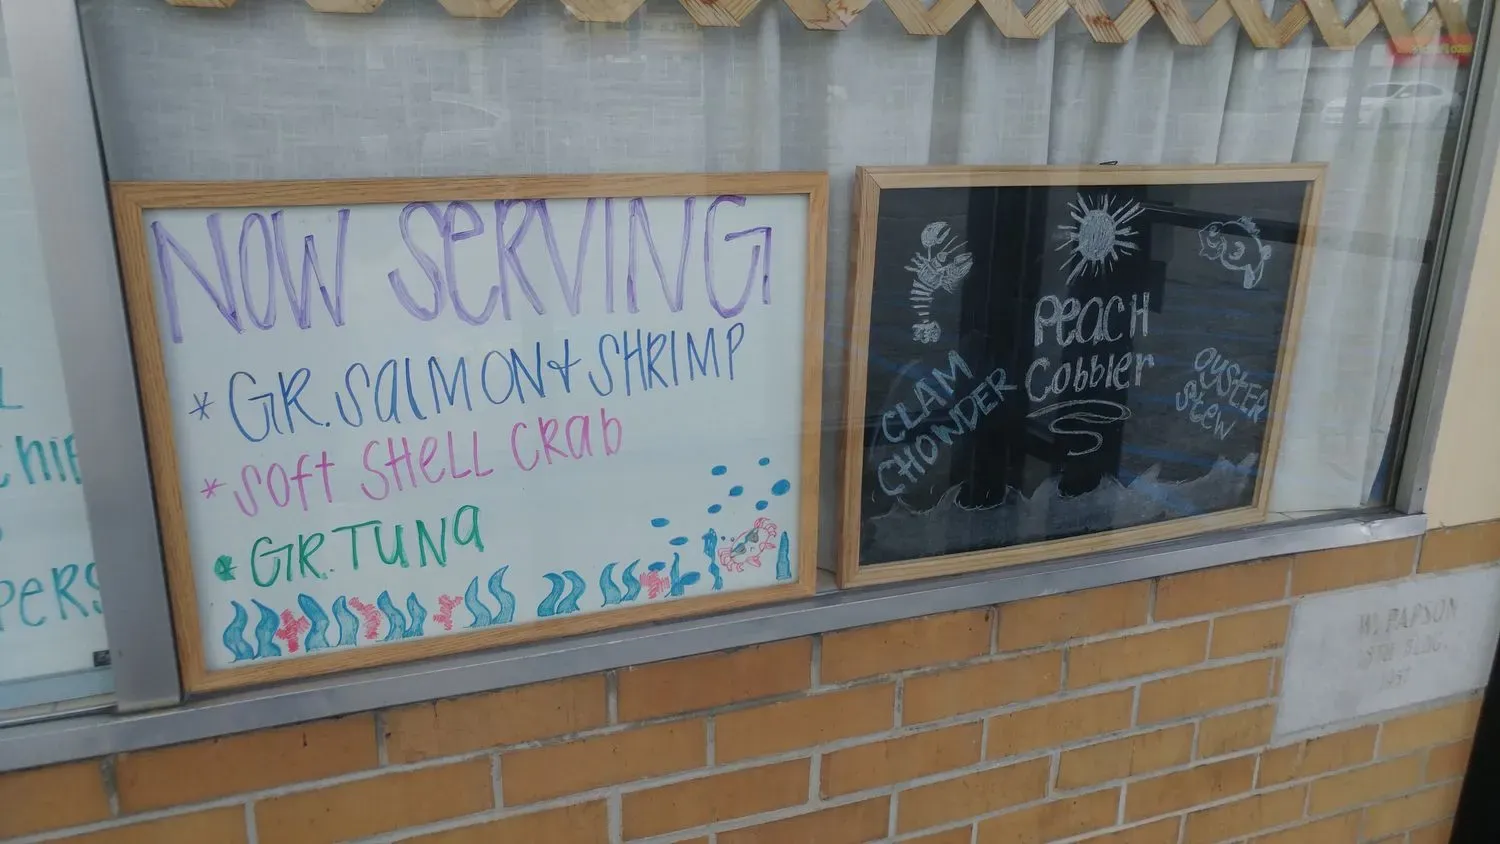 NOW SERVING
* GR. SALMON & SHRIMP
* SOFT SHELL CRAB
* GR. TUNA
PEACH
CObbler
CLAM
CHOWDER
OYSTER
STEW
PERS
W. PAPSON
BLDG.